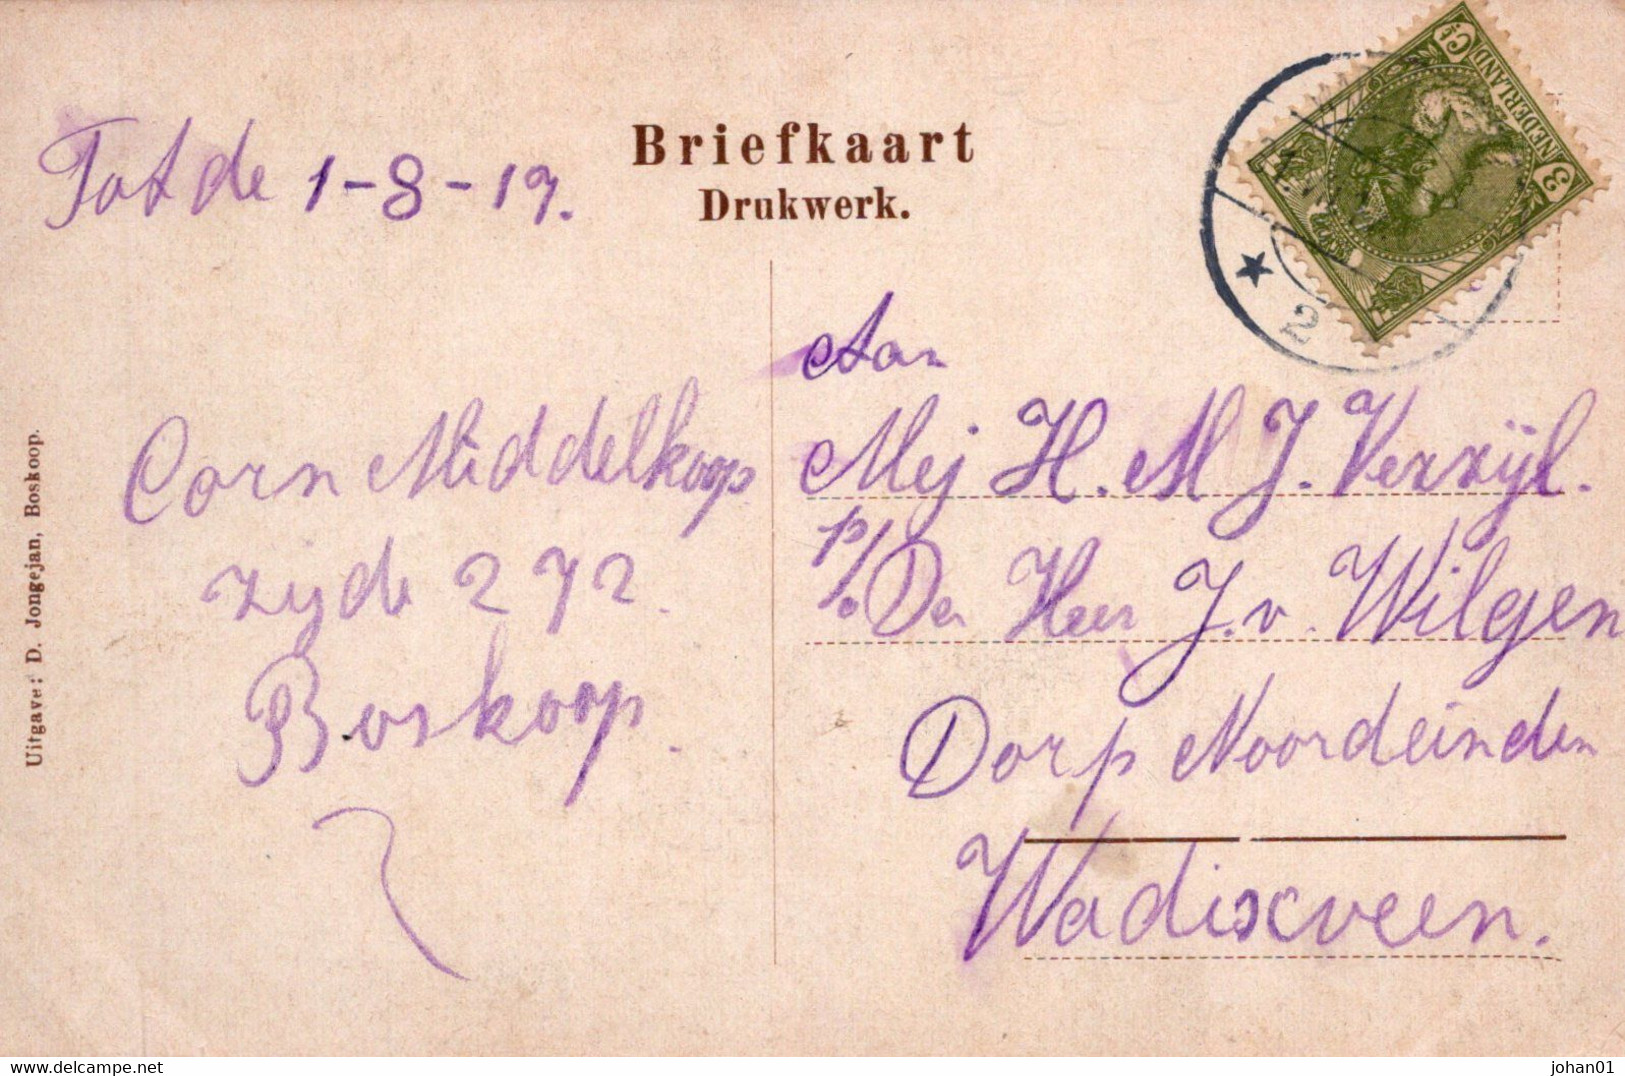 Briefkaart
Drukwerk.
Tot de 1-8-19.
Corn Middelkoop
zijde 272.
Boskoop.
Uitgave: D. Jongejan, Boskoop.
3 NEDERLAND Ct.
2
Aan
Mej H. M J. Verzijl.
p/o. Den Heer J. v. Wilgen
Dorp Noordeinden
Wadixveen.
www.delcampe.net
johan01